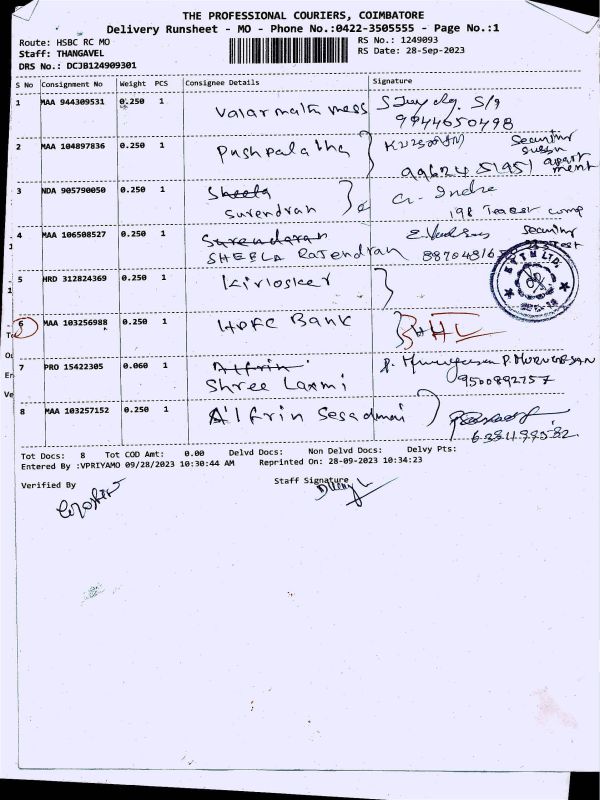 THE PROFESSIONAL COURIERS, COIMBATORE
Delivery Runsheet - MO - Phone No.:0422-3505555 - Page No.:1
Route: HSBC RC MO
RS No.: 1249093
Staff: THANGAVEL
RS Date: 28-Sep-2023
DRS No.: DCJB124909301
S No Consignment No Weight PCS Consignee Details Signature
1 MAA 944309531 0.250 1 Valarmathi mess
9944650498
2 MAA 104897836 0.250 1 Pushpalatha
Security
apartment
3 NDA 905790050 0.250 1 Sheela
Surendran
G. Indra
4 MAA 106508527 0.250 1 Surendaran
SHEELA Rajendran
Security
5 HRD 312824369 0.250 1 Kirlosker
6 MAA 103256988 0.250 1 HDFC Bank
7 PRO 15422305 0.060 1 Alfrin
Shree Laxmi
P. MURUGESAN
9500892757
8 MAA 103257152 0.250 1 Alfrin Sesadmai
Tot Docs: 8 Tot COD Amt: 0.00 Delvd Docs: Non Delvd Docs: Delvy Pts:
Entered By :VPRIYAMO 09/28/2023 10:30:44 AM Reprinted On: 28-09-2023 10:34:23
Verified By Staff Signature